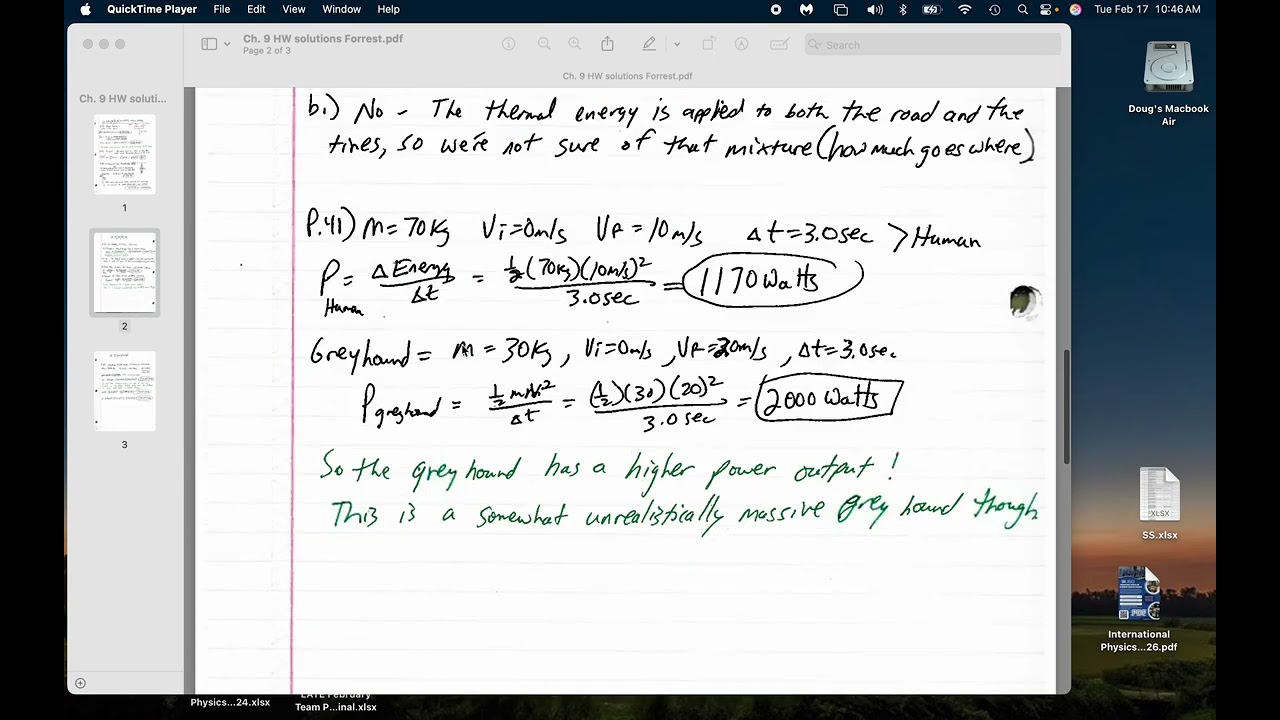 QuickTime Player File Edit View Window Help Tue Feb 17 10:46 AM
Ch. 9 HW solutions Forrest.pdf
Page 2 of 3
Search
Ch. 9 HW solutions Forrest.pdf
Ch. 9 HW soluti...
1
2
3
b.) No - The thermal energy is applied to both the road and the
tires, so we're not sure of that mixture (how much goes where)
P.41) m = 70kg Vi = 0m/s VF = 10m/s Δt = 3.0sec > Human
P Human = ΔEnergy/Δt = ½(70kg)(10m/s)²/3.0sec = 1170 Watts
Greyhound = m = 30kg, Vi = 0m/s, VF = 20m/s, Δt = 3.0sec
P greyhound = ½mv²/Δt = (½)(30)(20)²/3.0sec = 2000 Watts
So the greyhound has a higher power output!
This is a somewhat unrealistically massive greyhound though.
Doug's Macbook
Air
XLSX
SS.xlsx
International
Physics...26.pdf
Physics...24.xlsx
LATE February
Team P...inal.xlsx